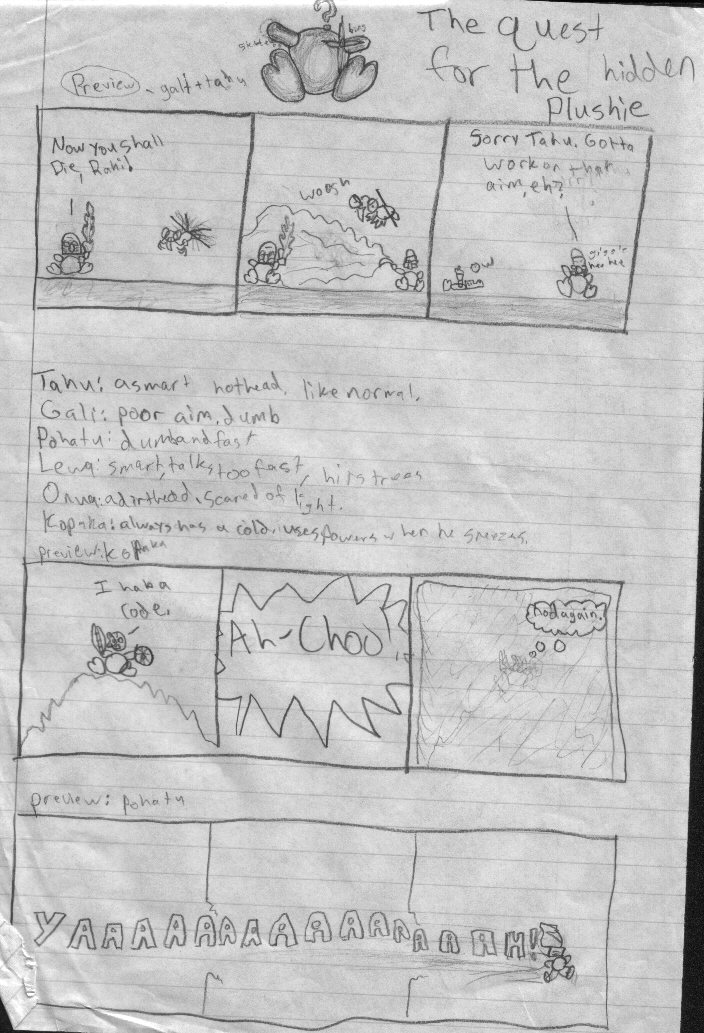 The quest
for the hidden
Plushie
?
Preview, gali + tahu
Now you shall
Die, Rahi!
woosh
Sorry Tahu. Gotta
work on that
aim, eh?
ow
giggle
hee hee
Tahu: a smart hothead, like normal.
Gali: poor aim, dumb
Pohatu: dumb and fast
Lewa: smart, talks too fast, hits trees
Onua: a dirthead, scared of light.
Kopaka: always has a cold, uses powers when he sneezes.
preview: kopaka
I haba
code.
Ah-Choo
Nod again.
preview: pohatu
YAAAAAAAAAAAAAAAH!